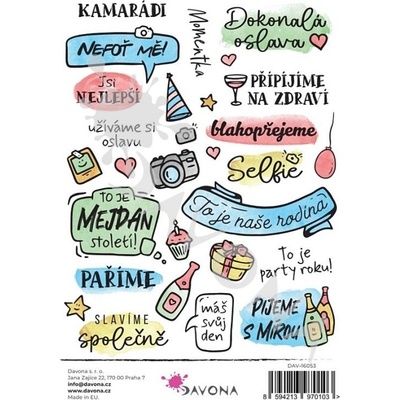 KAMARÁDI
Momentka
Dokonalá
oslava
NEFOŤ MĚ!
Jsi
NEJLEPŠÍ
PŘIPÍJÍME
NA ZDRAVÍ
užíváme si
oslavu
blahopřejeme
Selfie
TO JE
MEJDAN
století!
To je naše rodina
To je
party roku!
PAŘÍME
SLAVÍME
společně
máš
svůj
den
PIJEME
S MÍROU
Davona s. r. o.
Jana Zajíce 22, 170 00 Praha 7
info@davona.cz
www.davona.cz
Made in EU.
DAVONA
DAV-16053
8 594213 970103 >